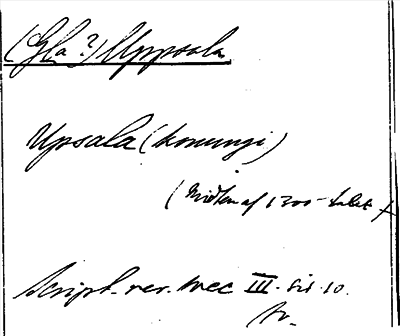 (Gla?) Uppsala
Upsala (konungi)
(Midten af 1200-talet)
Script. rer. svec III. sid. 10.